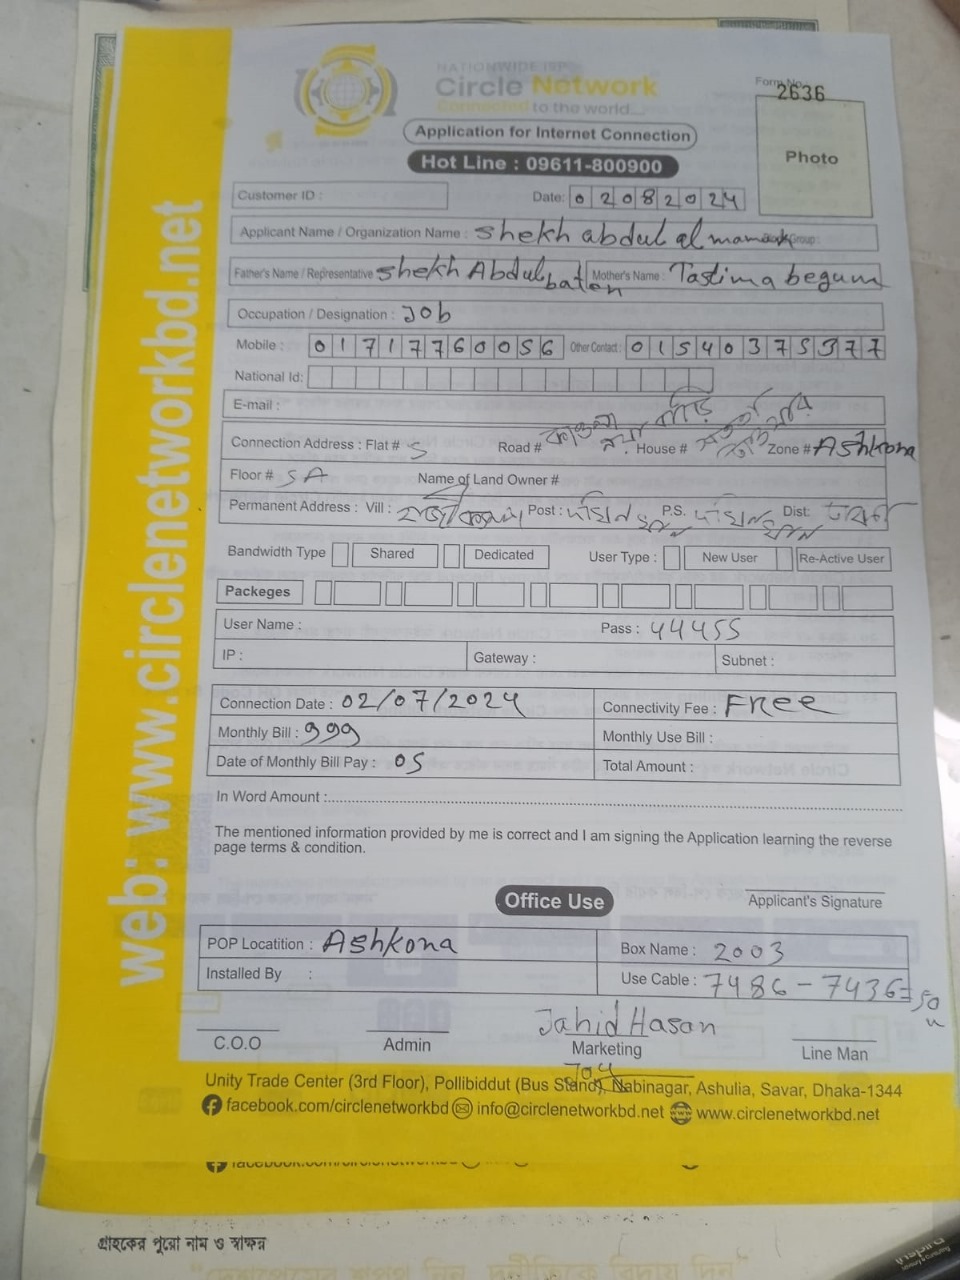 NATIONWIDE ISP
Circle Network
Connected to the world
Form No. 2636
Application for Internet Connection
Hot Line : 09611-800900
Photo
Customer ID :
Date: 02082024
Applicant Name / Organization Name : Shekh abdul al mamun Group :
Father's Name / Representative Shekh Abdul baten Mother's Name : Taslima begum
Occupation / Designation : Job
Mobile : 01717760056 Other Contact : 01540375377
National Id:
E-mail :
Connection Address : Flat # 5 Road # House # Zone # Ashkona
Floor # 5A Name of Land Owner #
Permanent Address : Vill : Post : P.S. Dist:
Bandwidth Type Shared Dedicated User Type : New User Re-Active User
Packeges
User Name : Pass : 44455
IP : Gateway : Subnet :
Connection Date : 02/07/2024 Connectivity Fee : Free
Monthly Bill : 999 Monthly Use Bill :
Date of Monthly Bill Pay : 05 Total Amount :
In Word Amount :
The mentioned information provided by me is correct and I am signing the Application learning the reverse
page terms & condition.
Office Use
Applicant's Signature
POP Locatition : Ashkona Box Name : 2003
Installed By : Use Cable : 7486 - 7436 = 50
Jahid Hasan
C.O.O Admin Marketing Line Man
704
Unity Trade Center (3rd Floor), Pollibiddut (Bus Stand), Nabinagar, Ashulia, Savar, Dhaka-1344
facebook.com/circlenetworkbd info@circlenetworkbd.net www.circlenetworkbd.net
web: www.circlenetworkbd.net
গ্রাহকের পুরো নাম ও স্বাক্ষর